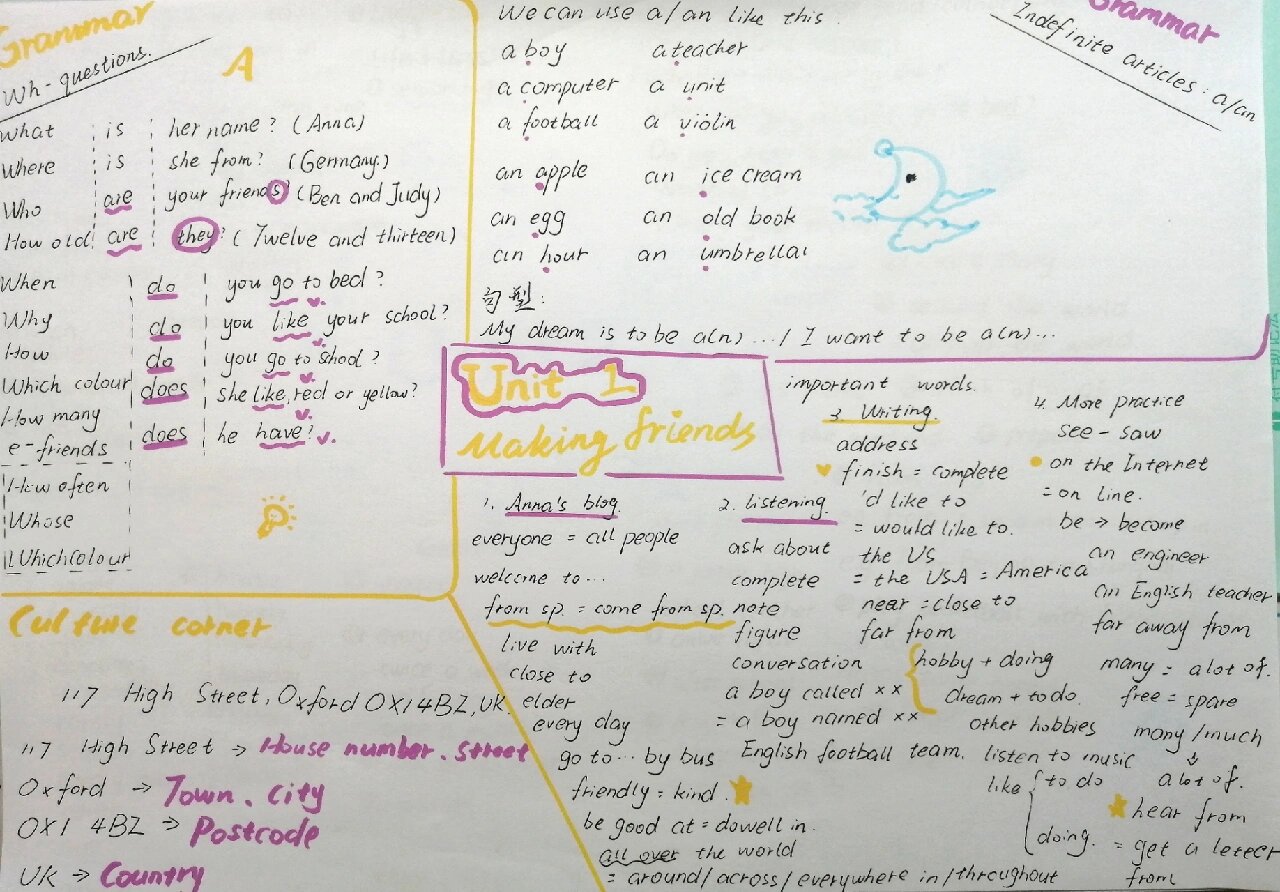 Grammar
Wh-questions.
A
What is her name? (Anna)
Where is she from? (Germany.)
Who are your friends? (Ben and Judy)
How old are they? (Twelve and thirteen)
When do you go to bed?
Why do you like your school?
How do you go to shool?
Which colour does she like, red or yellow?
How many
e-friends does he have?
How often
Whose
Which colour
We can use a/an like this.
a boy a teacher
a computer a unit
a football a violin
an apple an ice cream
an egg an old book
an hour an umbrella
句型:
My dream is to be a(n) .../ I want to be a(n)...
Grammar
Indefinite articles: a/an
Unit 1
Making friends
important words.
1. Anna's blog.
everyone = all people
welcome to...
from sp. = come from sp.
live with
close to
elder
every day
go to... by bus
friendly = kind.
be good at = do well in.
all over the world
= around/across/everywhere in/throughout
2. listening.
ask about
complete
note
figure
conversation
a boy called ××
= a boy named ××
English football team.
3. Writing.
address
finish = complete
'd like to
= would like to.
the US
= the USA = America
near = close to
far from
hobby + doing
dream + to do.
other hobbies
listen to music
like to do
doing.
4. More practice
see-saw
on the Internet
= on line.
be → become
an engineer
an English teacher
far away from
many = a lot of.
free = spare
many/much
a lot of.
hear from
= get a letter
from
Culture corner
117 High Street, Oxford OX1 4BZ, UK
117 High Street → House number. Street
Oxford → Town. City
OX1 4BZ → Postcode
UK → Country